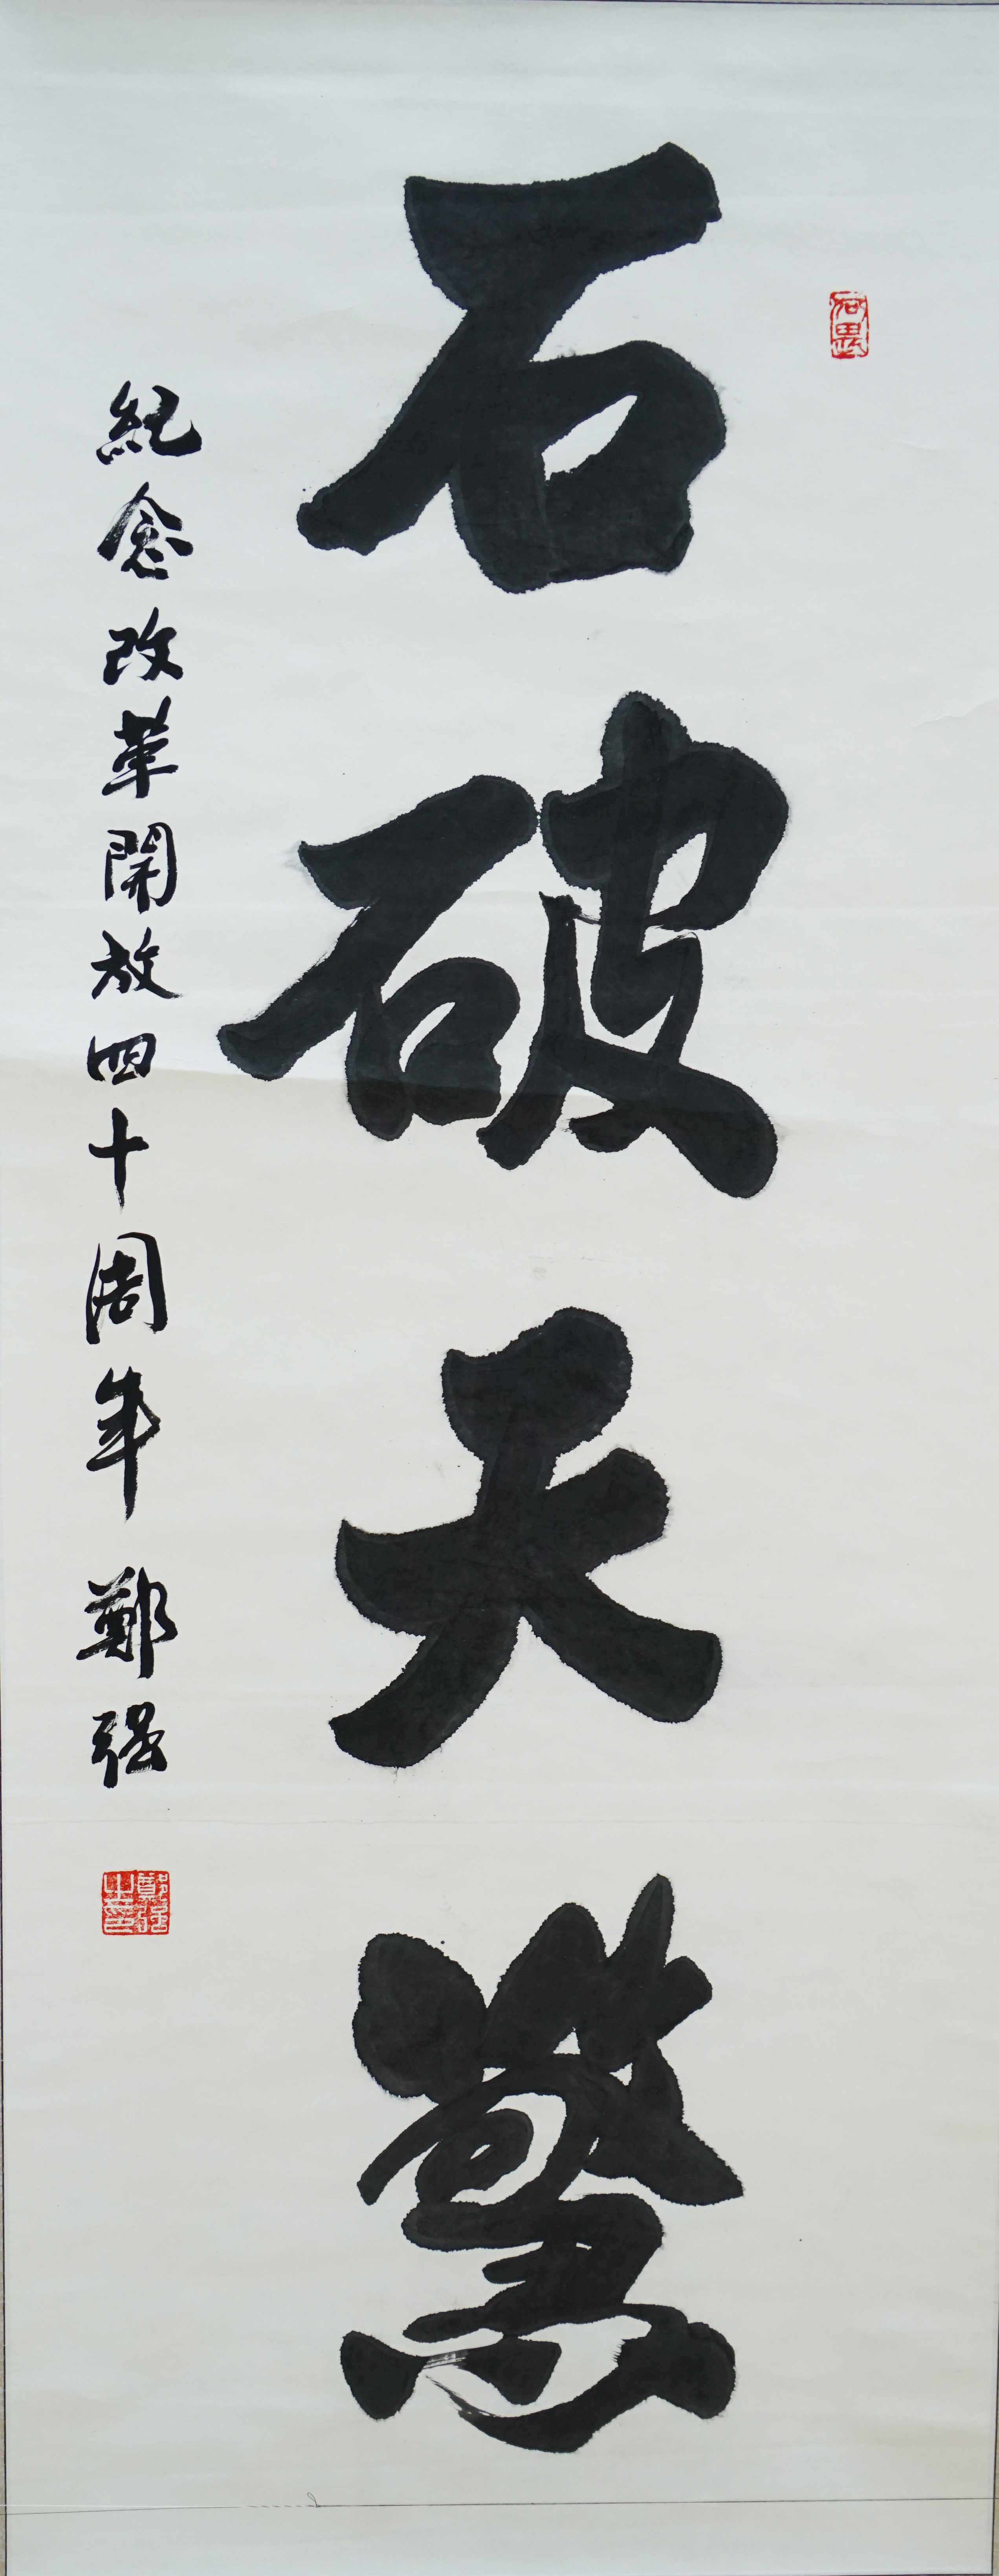 石破天驚
紀念改革開放四十周年 鄭强
鄭强之印